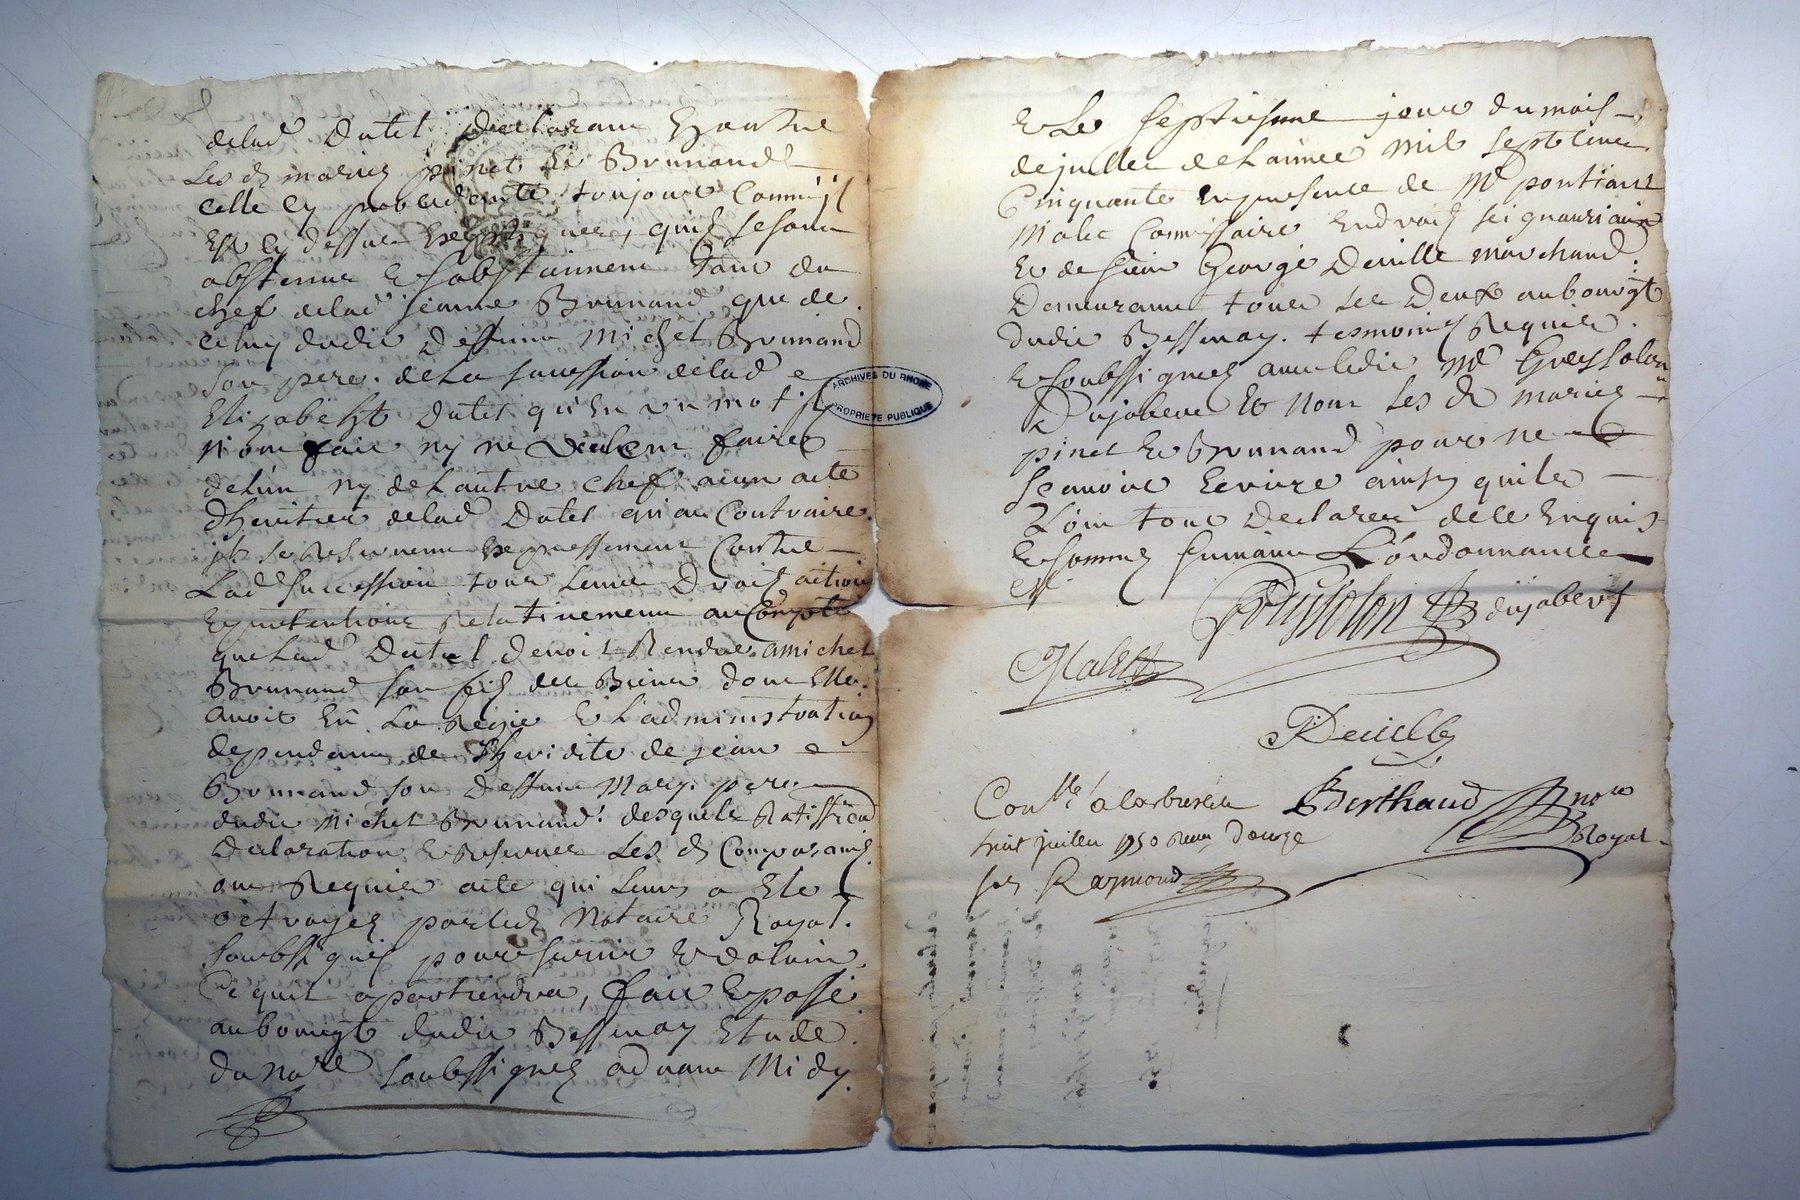 delad^e Dutel declarant Et outre
Les d^s mariez pinet Et Brunand
celle cy precedente toujours Comme jl
Est cy dessus Expliquer, quils se sont
abstenus Et sabstiennent tant du
chef delad^e jeanne Brunand que de
celuy dudit deffunt Michel Brunand
son pere. de la succession delad^e
Elizabeht Dutel qu'En un mot jls
N'ont fait ny ne veulent faire
delun ny de Lautre chef aucun acte
d'heritier delad^e Dutel qu'au Contraire
jls se Reservent Expressement Contre
Lad^e succession tous Leurs Droits actions
Et pretentions Relativement au Compte
que Lad^e Dutel devoit Rendre a michel
Brunand son fils des Biens dont Elle
avoit Eu La Regie Et L'administration
dependant de Lheridité de jean
Brunand son deffunt Mary. pere
dudit Michel Brunand. desquels
Declaration Et Reserves Les d^s Comparants
ont Requis acte qui Leurs a Eté
octroyez par led^t Notaire Royal
soubssignés pour servir Et valoir
Ce quil apartiendra, fait Et passé
au bourgt dudit Bessenay Etude
du No^re soubssignez advant Midy
Et Le septiesme jour du mois
de juillet de Lannée Mil sept Cent
Cinquante En presence de M^e pontiant
Malet Commissaire En droits seigneuriaux
Et de sieur George Deville Marchand.
Demeurant tous Les Deux au bourgt
dudit Bessenay. tesmoins Requis
Et soubssignez avec ledit M^e
Dujabert Et Non Les d^s mariez
pinet Et Brunand pour ne
sçavoir Ecrire ainsy quils
L'ont tous Declarez de ce Enquis
Et sommez suivant L'ordonnance
dujabert
Malet
Deville
Con^lle a Larbresle Berthaud no^re
huit juillet 1750 Reçu douze Royal
sols Raymond
ARCHIVES DU RHONE
PROPRIETE PUBLIQUE